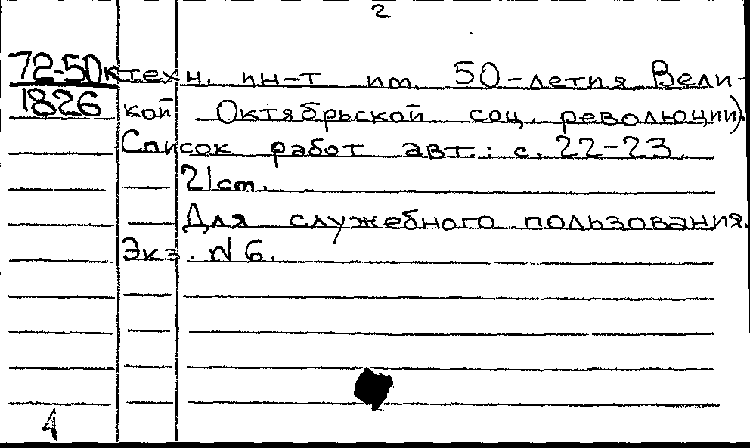 2
72-50к техн. ин-т им. 50-летия Вели-
1826 кой Октябрьской соц. революции).
Список работ авт.: с. 22-23
21 см.
Для служебного пользования.
Экз. N 6.
1